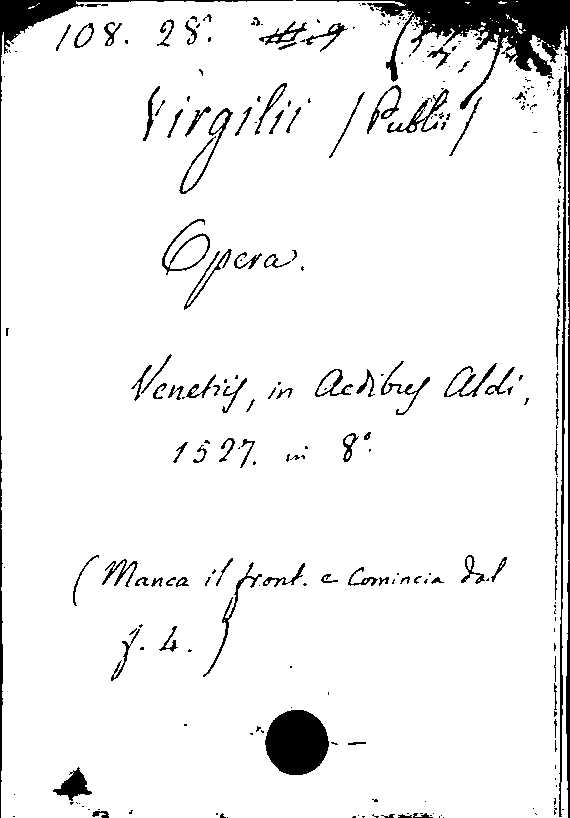 108. 28.
Virgilii (Publii)
Opera.
Venetiis, in Aedibus Aldi,
1527. in 8°.
(Manca il front. e Comincia dal
f. 4.)